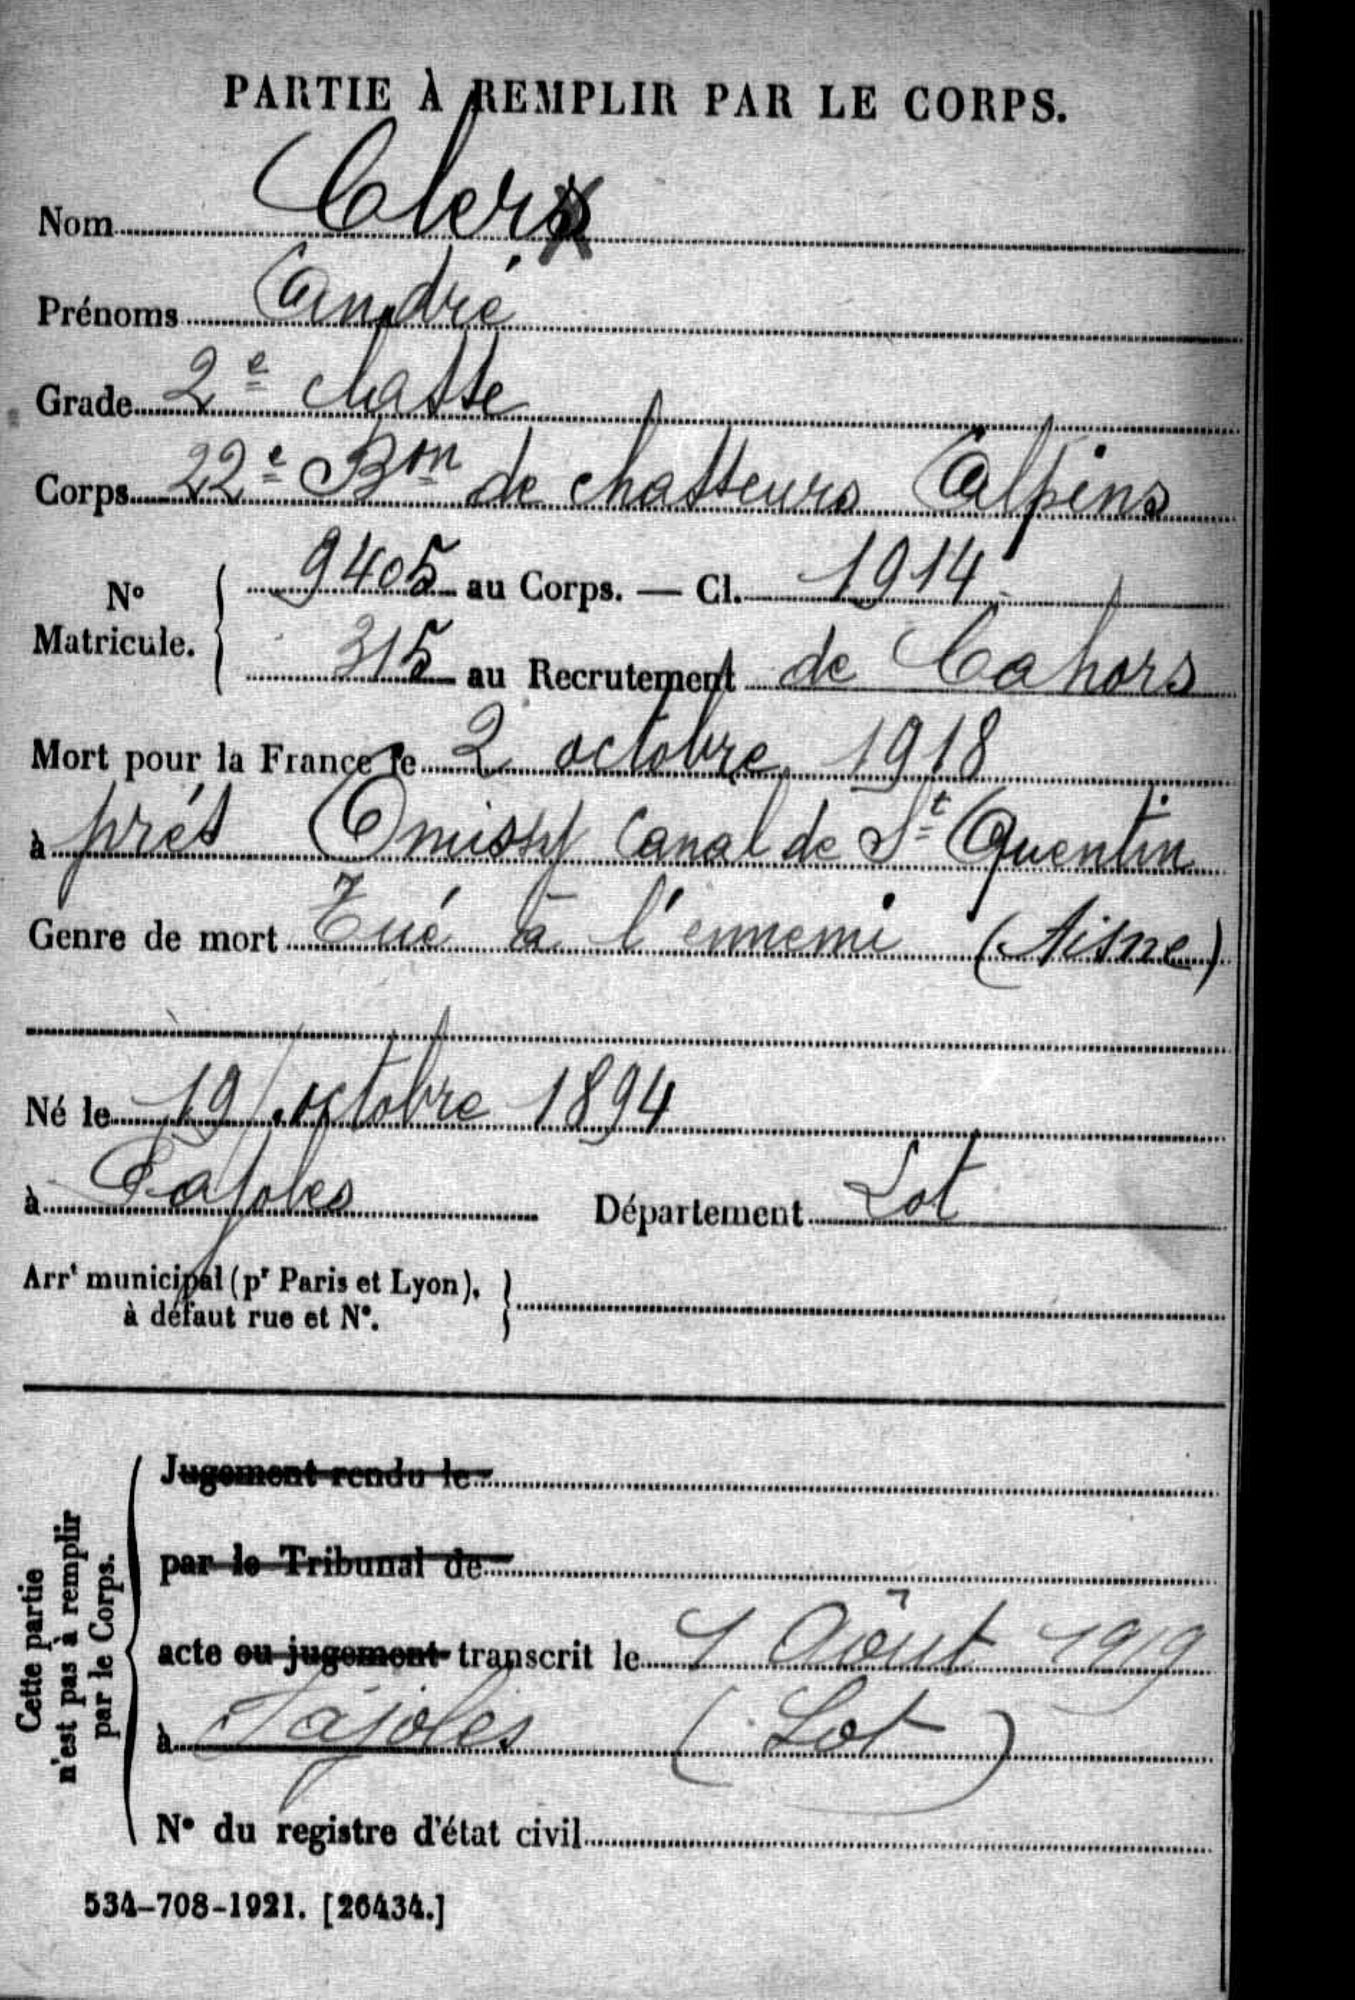 PARTIE À REMPLIR PAR LE CORPS.
Nom Cler
Prénoms André
Grade 2e classe
Corps 22e Bon de chasseurs Alpins
No Matricule. { 9405 au Corps. — Cl. 1914
315 au Recrutement de Cahors
Mort pour la France le 2 octobre 1918
à près Omissy Canal de St Quentin
Genre de mort Tué à l'ennemi (Aisne)
Né le 19 octobre 1894
à Fajoles Département Lot
Arrt municipal (pr Paris et Lyon), à défaut rue et No. }
Cette partie n'est pas à remplir par le Corps.
Jugement rendu le
par le Tribunal de
acte ou jugement transcrit le 1 Août 1919
à Fajoles (Lot)
No du registre d'état civil
534-708-1921. [26434.]